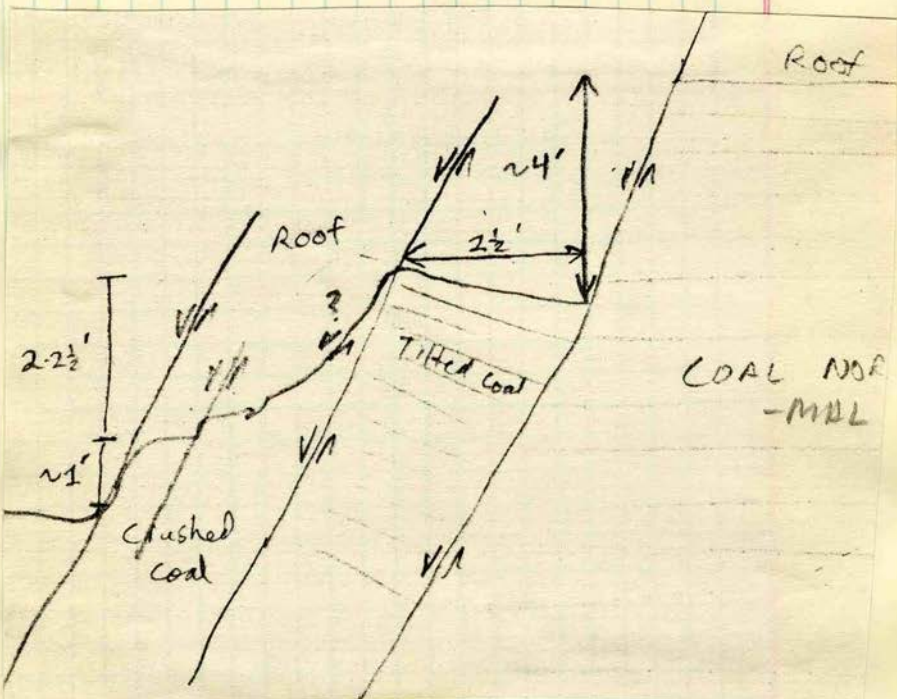 Roof
~4'
2½'
Roof
?
2-2½'
Tilted coal
COAL NOR
-MAL
~1'
Crushed
coal